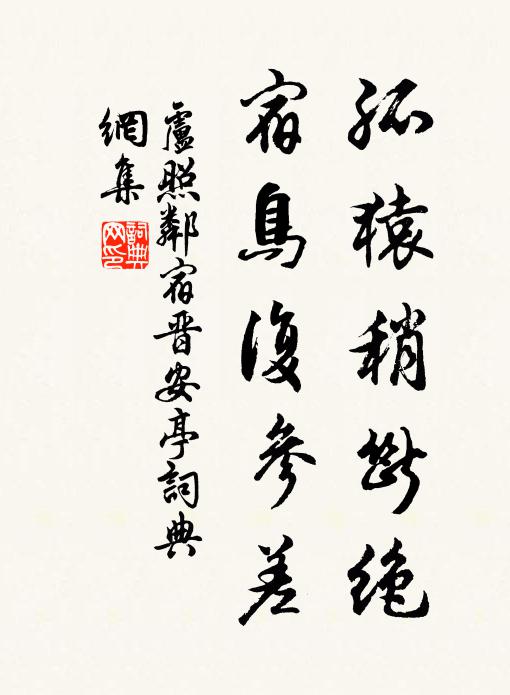 孤猿稍断绝
宿鳥復參差
盧照鄰宿晋安亭詞典
網集
詞典网印